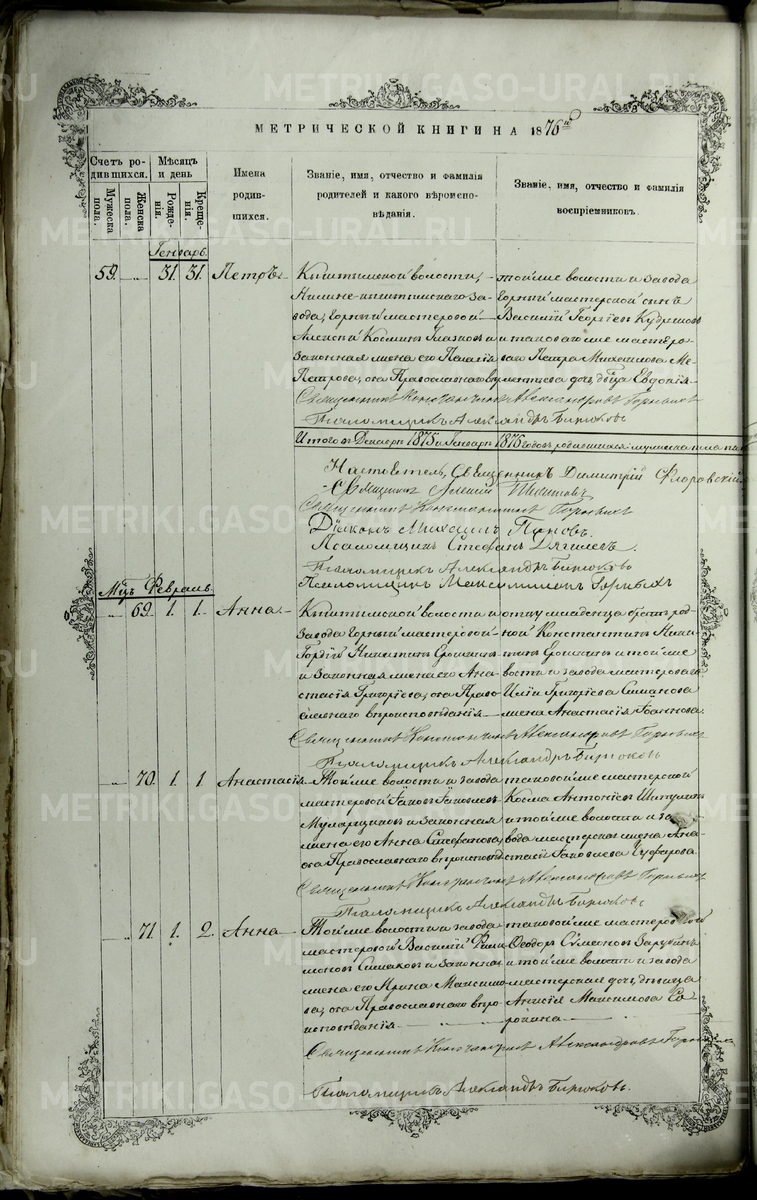 METRIKI.GASO-URAL.RU
МЕТРИЧЕСКОЙ КНИГИ НА 1876й
Счетъ ро-
дившихся.
Мѣсяцъ
и день
Мужеска
пола.
Женска
пола.
Рожде-
нія.
Креще-
нія.
Имена
родив-
шихся.
Званіе, имя, отчество и фамилія
родителей и какого вѣроиспо-
вѣданія.
Званіе, имя, отчество и фамилія
воспріемниковъ.
Генварь.
59. 31. 31. Петръ
Кыштымской волости,
Нижне-кыштымскаго за-
вода, Горный мастеровой
Алексѣй Космин
законная жена его Пелагія
Петрова, оба Православнаго
той же волости и завода
Горный мастерской сынъ
Василій Георгіев
и таковаго же мастеро-
ваго Петра Михаилова Ме-
дочь, дѣвица Евдокія
Священникъ Александровъ
Псаломщикъ Александръ Бирюковъ
Итого въ Декабрѣ 1875 и Генварѣ 1876 годовъ родившихся: мужеска пола
Настоятель, Священникъ Димитрій Флоровскій
Священникъ Алексій
Священникъ
Діаконъ Михаилъ Поповъ.
Псаломщикъ Стефанъ Дягилевъ.
Псаломщикъ Александръ Бирюковъ
Псаломщикъ Максимиліанъ
Мцъ Февраль.
69. 1. 1. Анна
Кыштымской волости и
завода Горный мастеровой
Гордій Никитин
и законная жена его Ана-
стасія Григоріева, оба Право-
славнаго вѣроисповѣданія
отцу младенца братъ род-
ной Константинъ Ники-
тинъ и той же
волости и завода мастероваго
Иліи Григоріева Симанова
жена Анастасія Іоаннова.
Священникъ Александровъ
Псаломщикъ Александръ Бирюковъ
70. 1. 1. Анастасія
Той же волости и завода
мастеровой Іаковъ Іаковлев
и законная
жена его Анна Стефанова,
оба Православнаго вѣроисповѣд
таковой же мастерской
Косма Антоніев
и той же волости и за-
вода мастерская жена Ана-
стасія Іаковлева
Священникъ Александровъ
Псаломщикъ Александръ Бирюковъ
71. 1. 2. Анна
Той же волости и завода
мастеровой Василій Фили-
монов и законная
жена его Ирина Максимо-
ва, оба Православнаго вѣро-
исповѣданія
таковой же мастеровой
Ѳеодоръ Сѵмеонов
и той же волости и завода
мастерская дочь, дѣвица
Анисія Максимова Со-
рокина
Священникъ Александровъ
Псаломщикъ Александръ Бирюковъ.